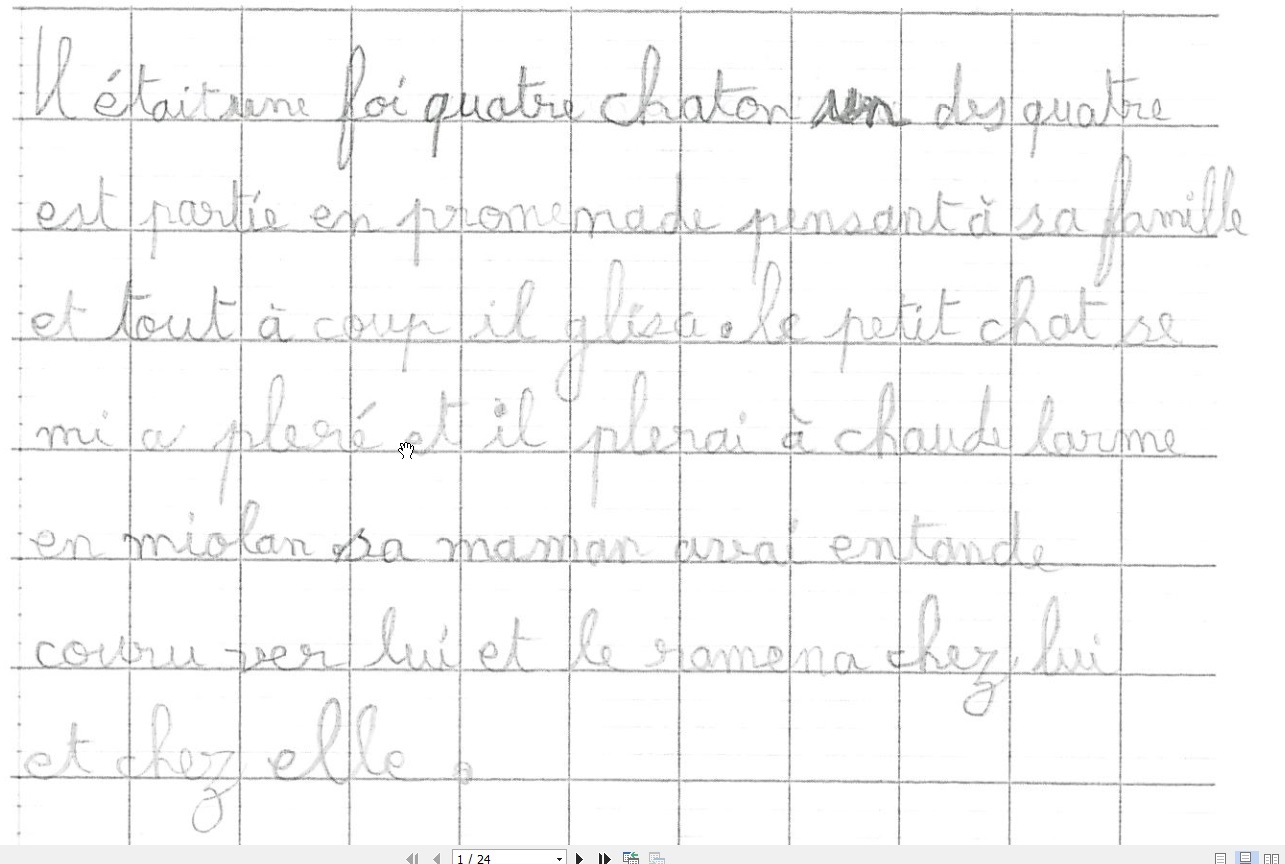 Il était une foi quatre chaton un des quatre
est partie en promenade pensant à sa famille
et tout à coup il glisa. le petit chat se
mi a pleré et il plerai à chaude larme
en miolan sa maman avai entande
couru ver lui et le ramena chez lui
et chez elle.
1 / 24